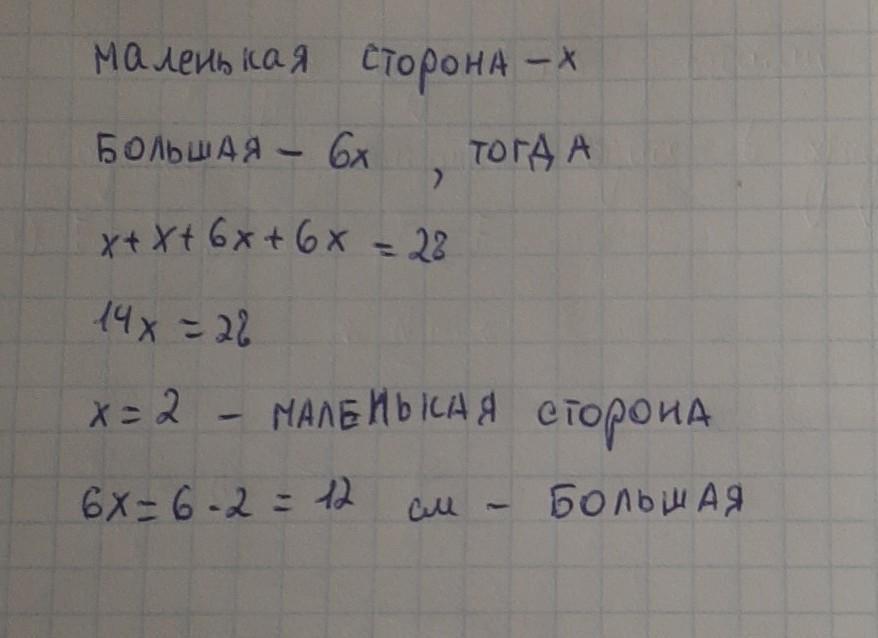 маленькая сторона - x
большая - 6x , тогда
x + x + 6x + 6x = 28
14x = 28
x = 2 - маленькая сторона
6x = 6 · 2 = 12 см - большая